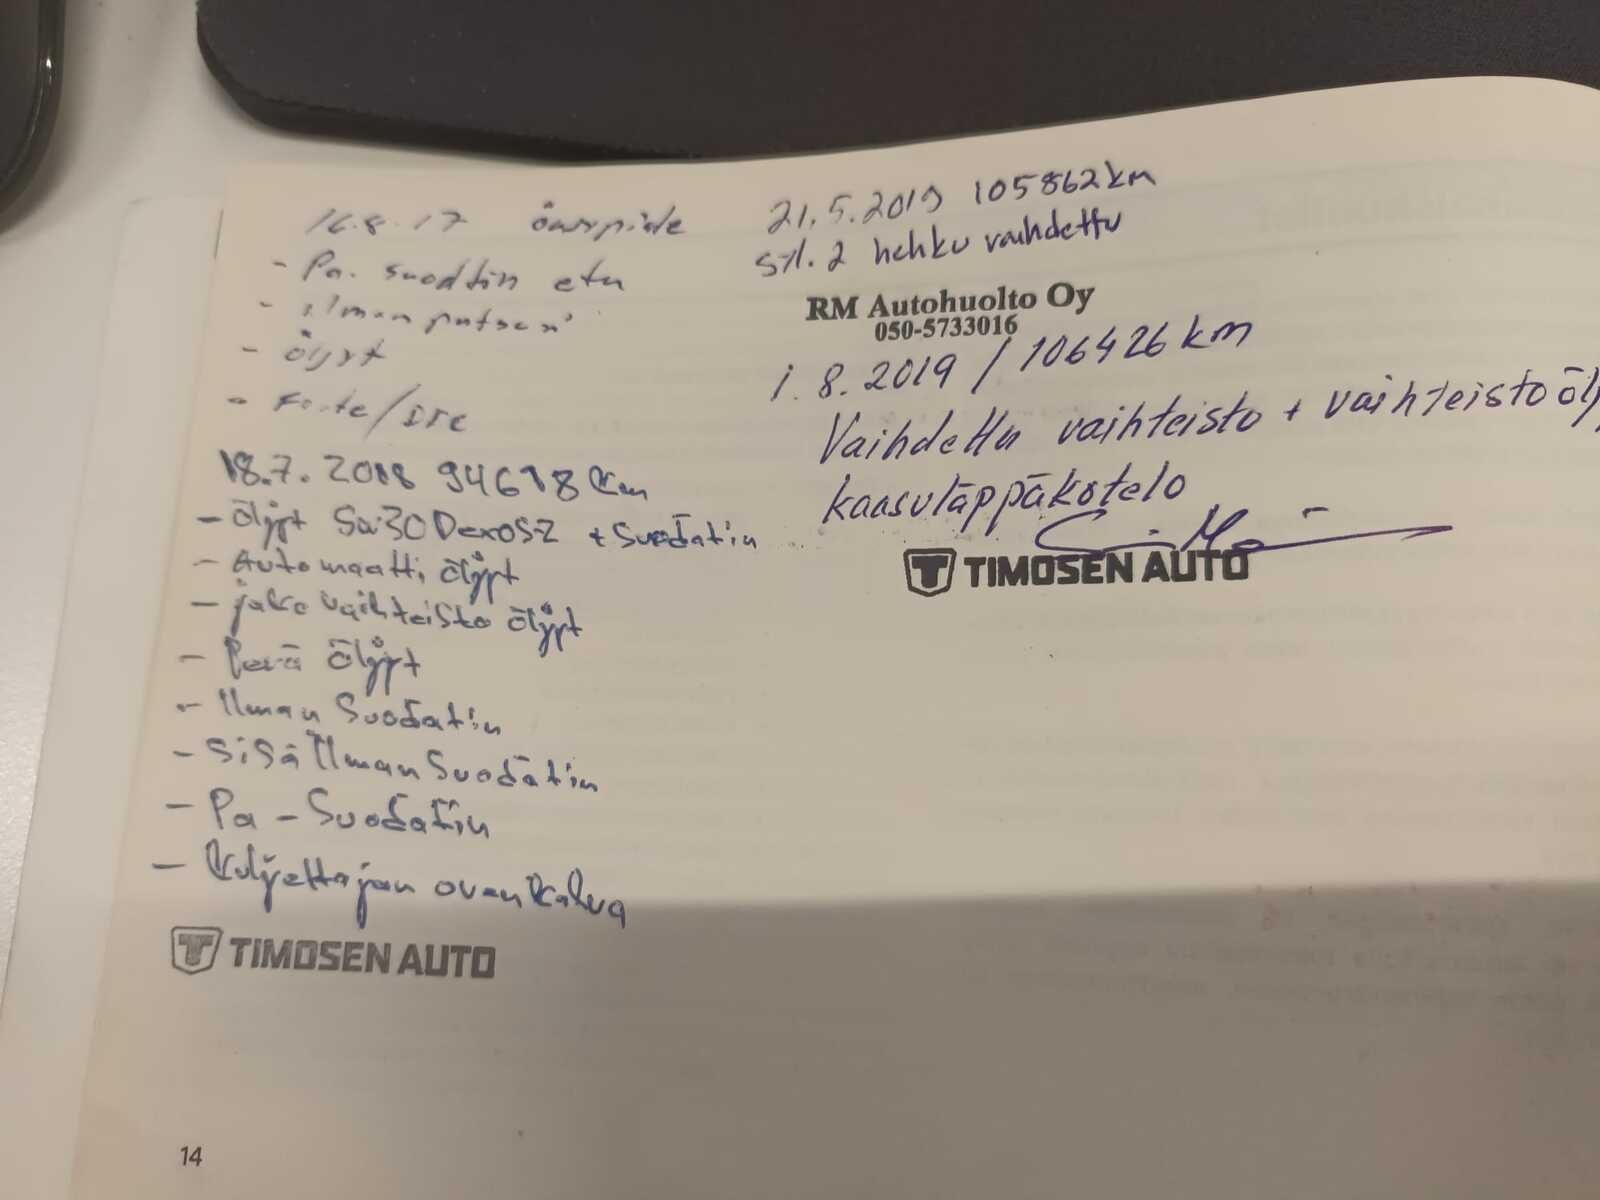 16.8.17
- Pa. suodtin etu
- ilman putsaus
- Öljyt
- Forte /
18.7.2018 94618 km
- Öljyt 5w30 Dexos2 + Suodatin
- Automaatti öljyt
- jako vaihteisto öljyt
- Perä öljyt
- Ilman Suodatin
- Sisä Ilman Suodatin
- Pa - Suodatin
- Kuljettajan oven kahva
TIMOSEN AUTO
14
21.5.2019 105862 km
syl. 2 hehku vaihdettu
RM Autohuolto Oy
050-5733016
1.8.2019 / 106426 km
Vaihdettu vaihteisto + vaihteistoölj
kaasuläppäkotelo
TIMOSEN AUTO